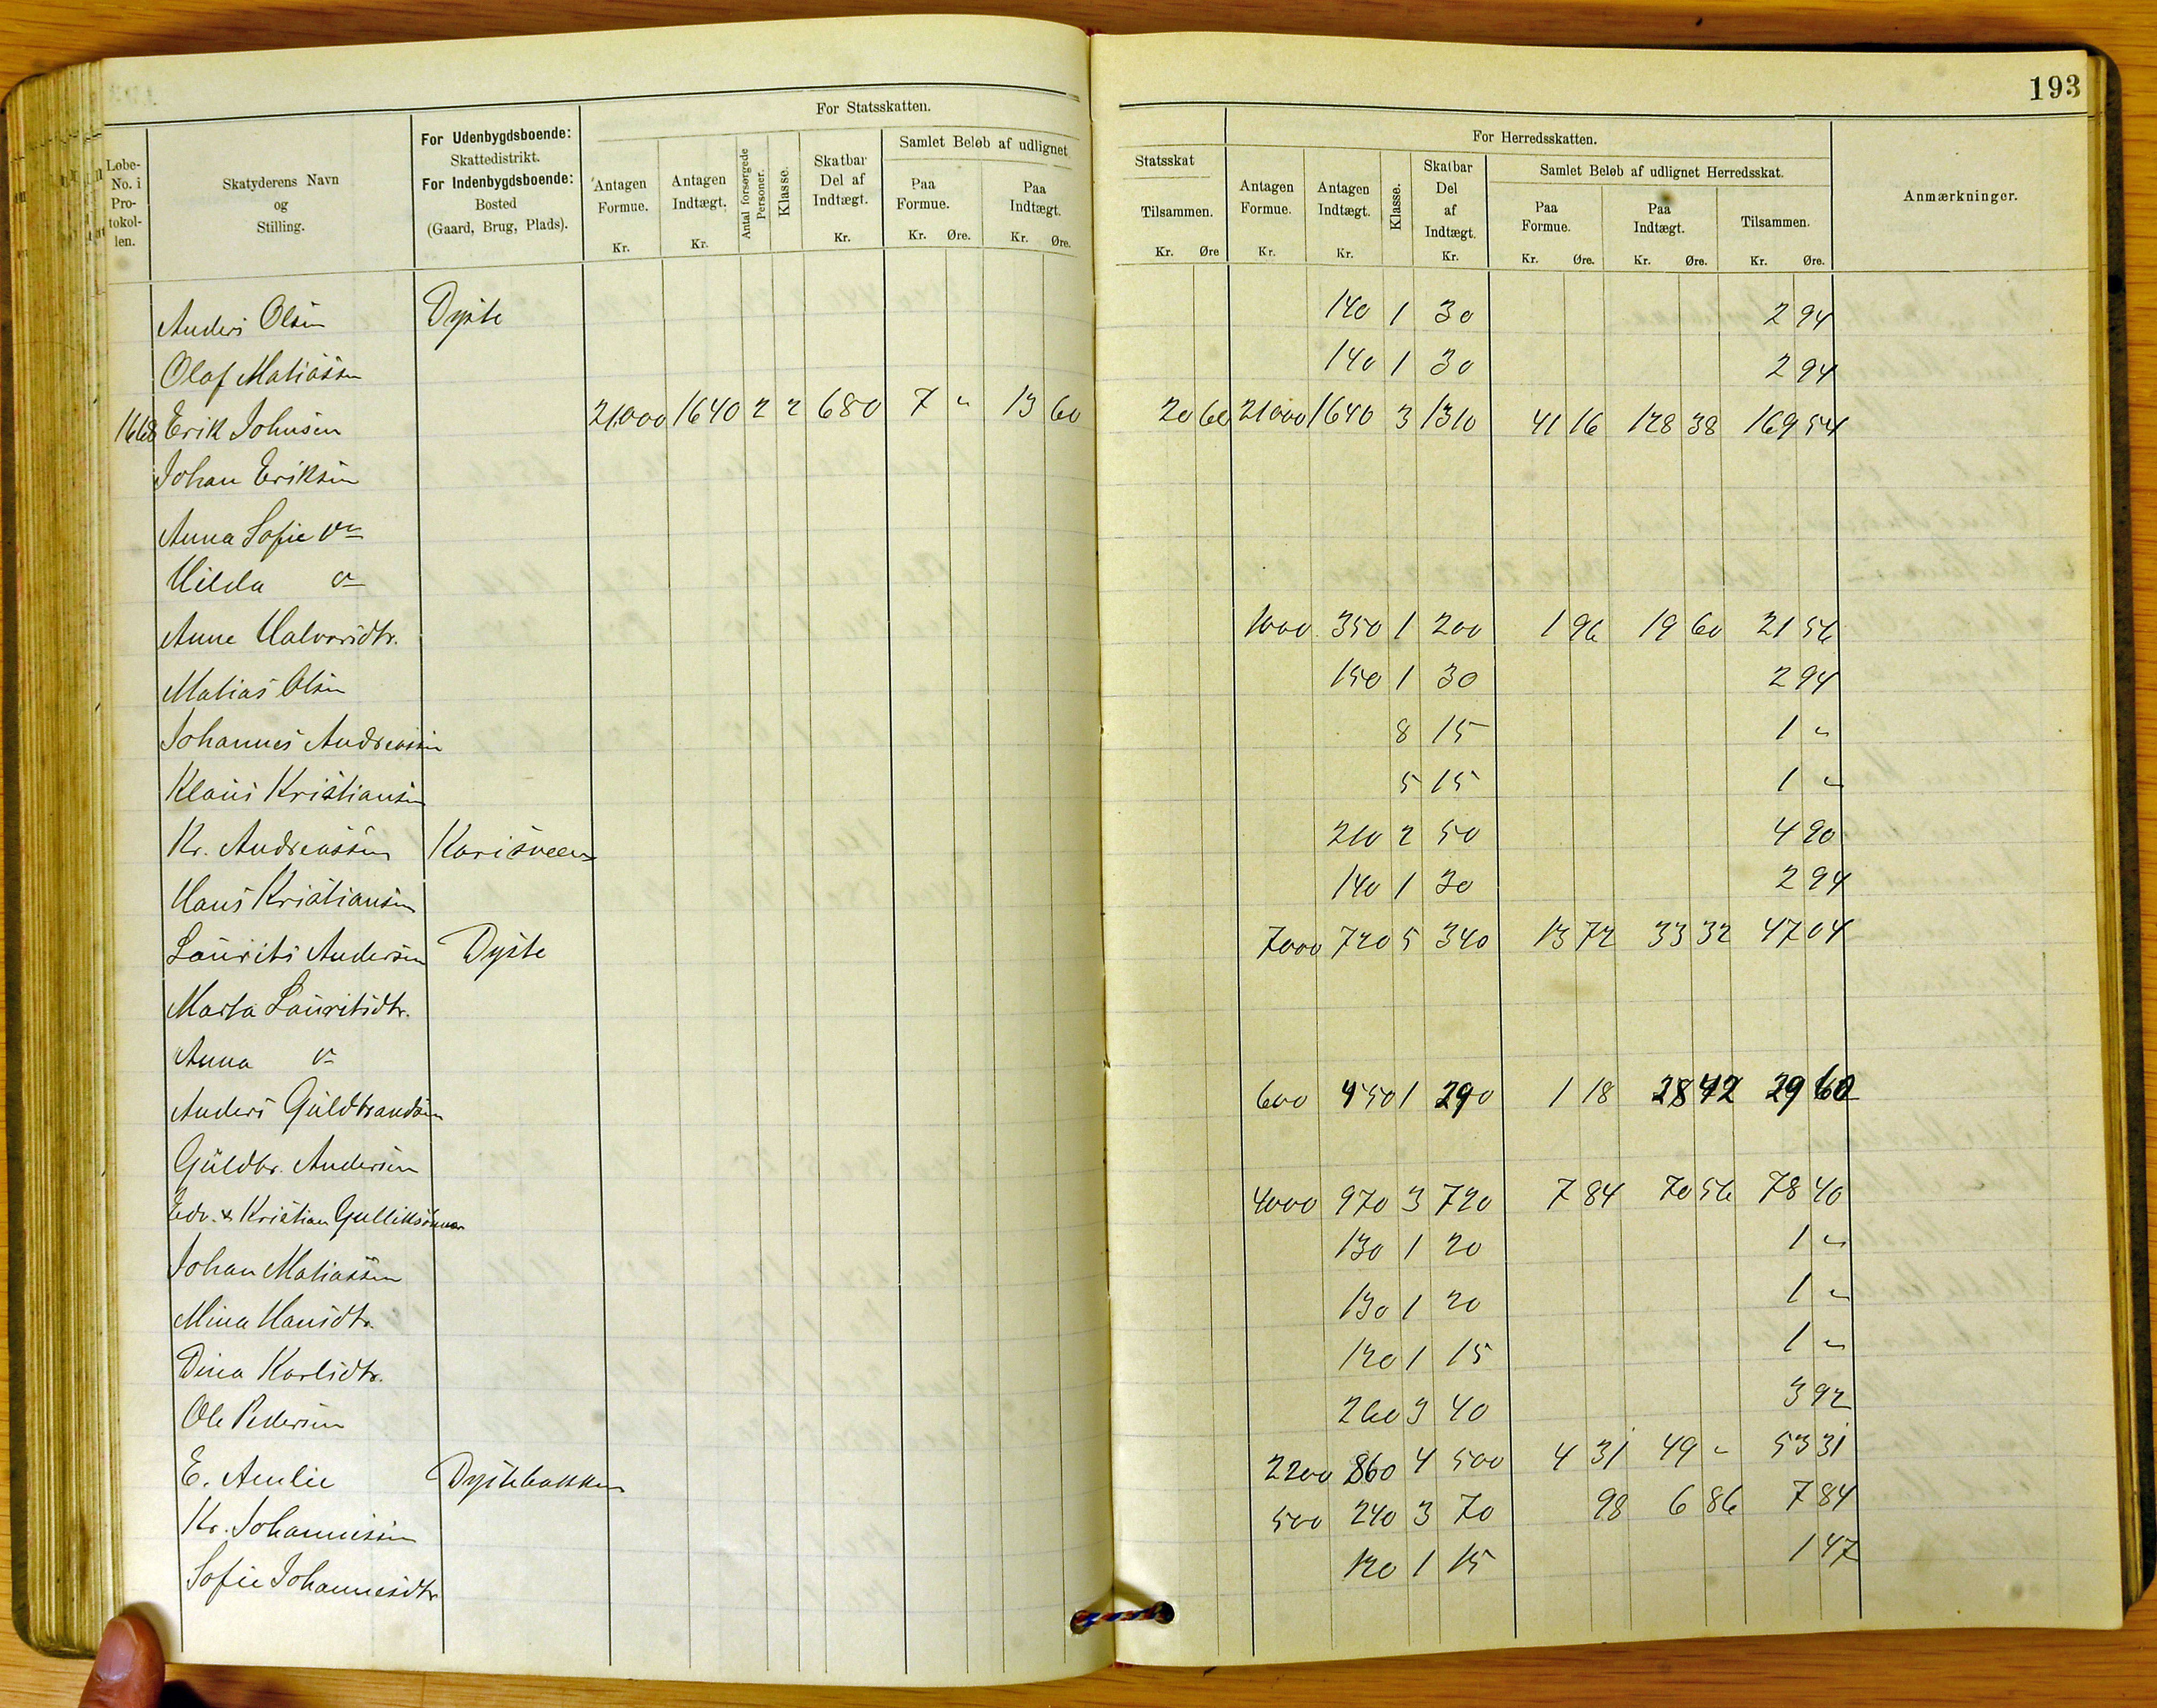 193
For Statsskatten.
Løbe-No. i Protokollen.
Skatyderens Navn og Stilling.
For Udenbygdsboende: Skattedistrikt. For Indenbygdsboende: Bosted (Gaard, Brug, Plads).
Antagen Formue. Kr.
Antagen Indtægt. Kr.
Antal forsørgede Personer.
Klasse.
Skatbar Del af Indtægt. Kr.
Samlet Beløb af udlignet
Paa Formue. Kr. Øre.
Paa Indtægt. Kr. Øre.
Statsskat
Tilsammen. Kr. Øre
For Herredsskatten.
Antagen Formue. Kr.
Antagen Indtægt. Kr.
Klasse.
Skatbar Del af Indtægt. Kr.
Samlet Beløb af udlignet Herredsskat.
Paa Formue. Kr. Øre.
Paa Indtægt. Kr. Øre.
Tilsammen. Kr. Øre.
Anmærkninger.
Anders Olsen Dyste 140 1 30 2 94
Olaf Matiassen 140 1 30 2 94
1668 Erik Johnsen 21000 1640 2 2 680 7 " 13 60 20 60 21000 1640 3 1310 41 16 128 38 169 54
Johan Eriksen
Anna Sofie
Hilda
Anne Halvorsdtr. 1000 350 1 200 1 96 19 60 21 56
Matias Olsen 150 1 30 2 94
Johannes Andreassen 8 15 1 "
Klaus Kristiansen 5 15 1 "
Kr. Andreassen Karisveen 210 2 50 4 90
Hans Kristiansen 140 1 30 2 94
Laurits Andersen Dyste 7000 720 5 340 13 72 33 32 47 04
Marta Lauritsdtr.
Anna
Anders Guldbrandsen 600 450 1 290 1 18 28 42 29 60
Guldbr. Andersen
Edv. & Kristian Gulliksønner 4000 970 3 720 7 84 70 56 78 40
Johan Matiassen 130 1 20 1 "
Mina Hansdtr. 130 1 20 1 "
Dina Karlsdtr. 120 1 15 1 "
Ole Pedersen 260 3 40 3 92
E. Amlie Dystebakken 2200 860 4 500 4 31 49 " 53 31
Kr. Johannessen 500 240 3 70 98 6 86 7 84
Sofie Johannesdtr 120 1 15 1 47